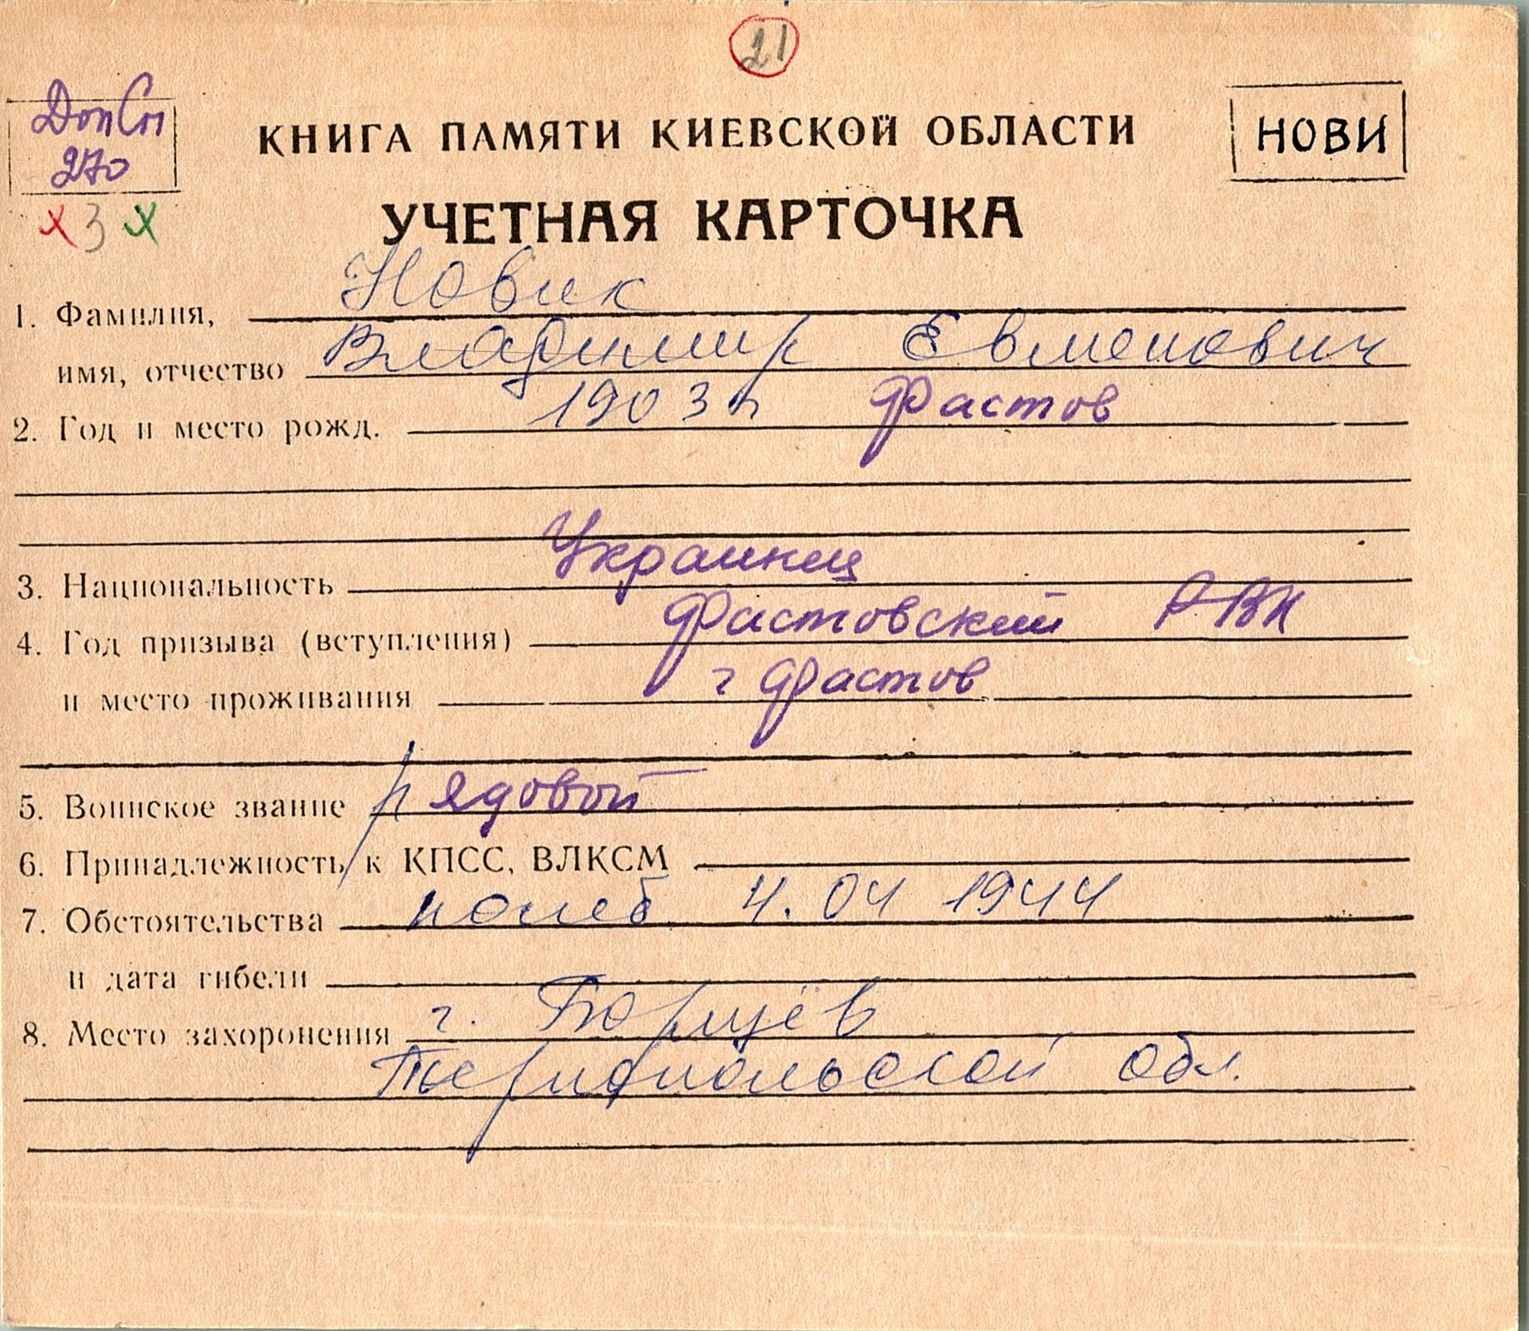 21
Доп Сп
270
КНИГА ПАМЯТИ КИЕВСКОЙ ОБЛАСТИ
НОВИ
х 3 х
УЧЕТНАЯ КАРТОЧКА
1. Фамилия, Новик
имя, отчество Владимир Евменович
2. Год и место рожд. 1903 г Фастов
3. Национальность Украинец
4. Год призыва (вступления) Фастовский РВК
и место проживания г Фастов
5. Воинское звание рядовой
6. Принадлежность к КПСС, ВЛКСМ
7. Обстоятельства погиб 4.04 1944
и дата гибели
8. Место захоронения г. Борщёв
Тернопольской обл.